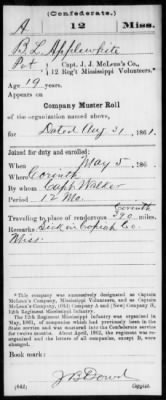 (Confederate.)
A 12 Miss.
B L Applewhite
Pvt, Capt. J. J. McLean's Co.,
12 Reg't Mississippi Volunteers.*
Age 19 years.
Appears on
Company Muster Roll
of the organization named above,
for Dated Aug 31, 1861.
Joined for duty and enrolled:
When May 5, 186
Where Corinth
By whom Capt Walker
Period 12 Mo.
Corinth
Traveling to place of rendezvous 290 miles.
Remarks: Sick in Copiah Co.
Miss.
*This company was successively designated as Captain
McLean's Company, Mississippi Volunteers, and as Captain
McLean's Company, (Old) Company A and (New) Company
12th Regiment Mississippi Infantry.
The 12th Regiment Mississippi Infantry was organized in
May, 1861, of companies which had previously been in the
State service and was mustered into the Confederate service
for twelve months. About April, 1862, the regiment was re-
organized and the letters of all the companies, except B, were
changed.
Book mark:
J B Dowd
(642) Copyist.